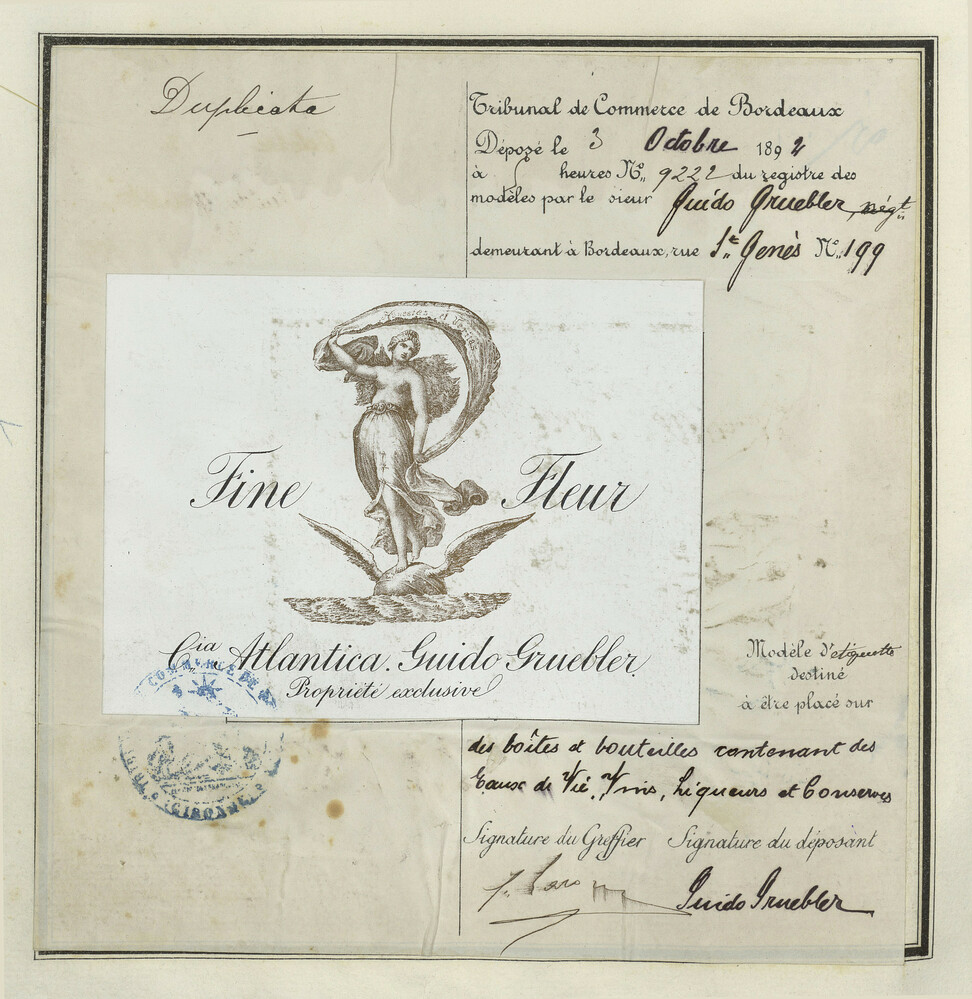 Duplicata
Tribunal de Commerce de Bordeaux
Déposé le 3 Octobre 1892
à heures N° 9222 du registre des
modèles par le sieur Guido Gruebler, négt
demeurant à Bordeaux, rue St Genès N° 199
Fine Fleur
Cia Atlantica. Guido Gruebler.
Propriété exclusive
Modèle d'étiquette
destiné
à être placé sur
des boîtes et bouteilles contenant des
Eaux de Vie, Vins, Liqueurs et Conserves
COMMERCE DE
GIRONDE
Signature du Greffier Signature du déposant
Guido Gruebler